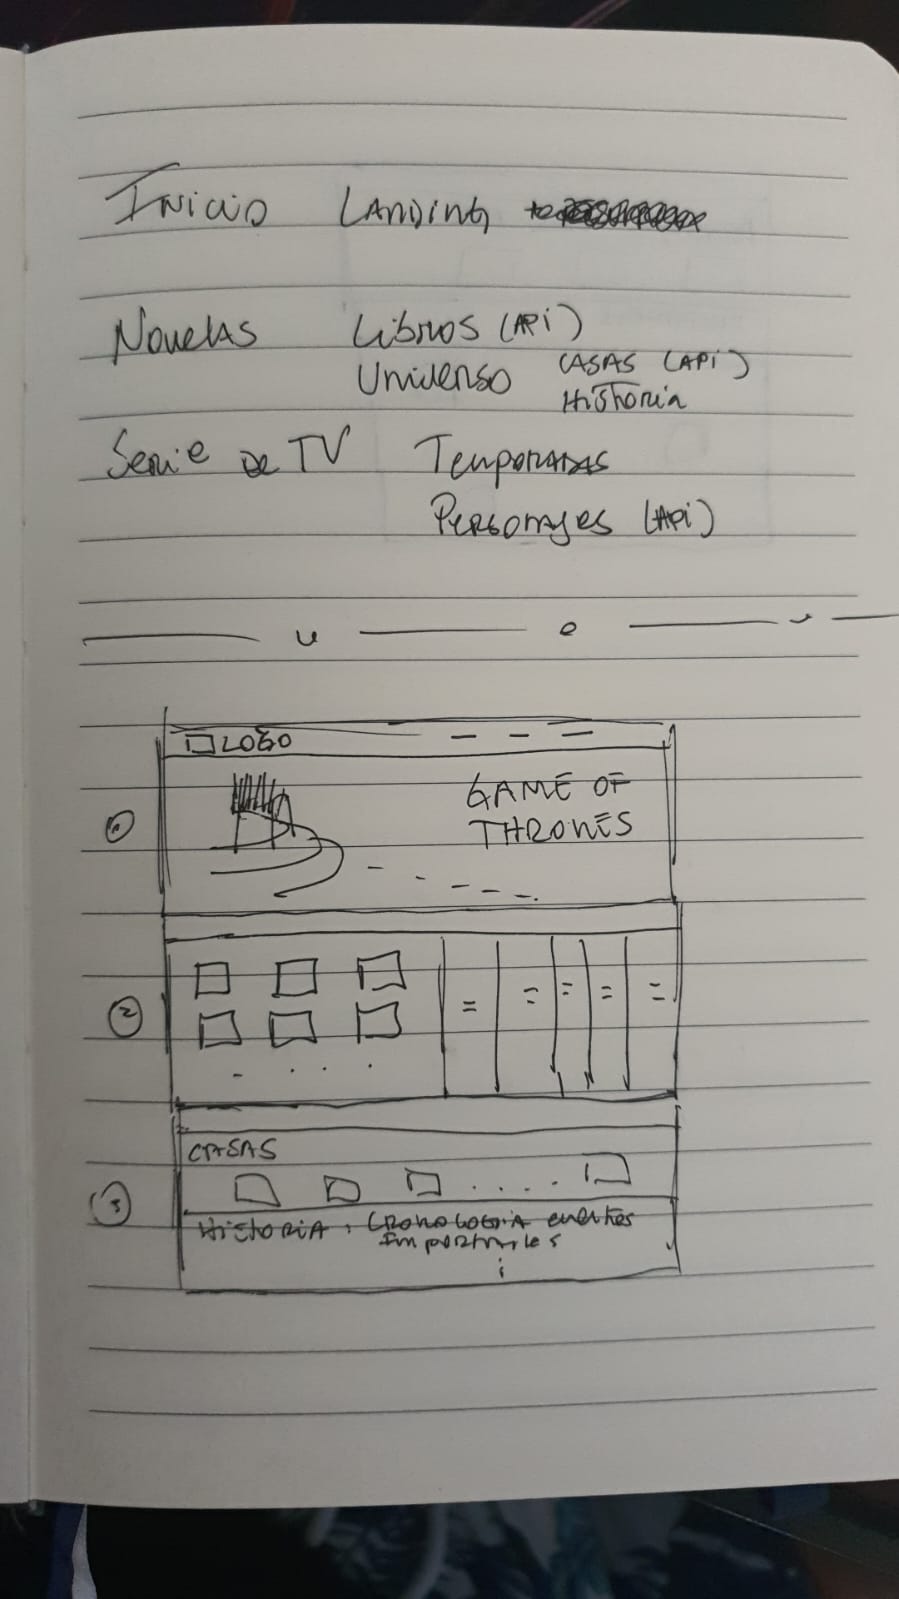 INICIO LANDING
NOVELAS LIBROS (API)
UNIVERSO CASAS (API)
HISTORIA
SERIE DE TV TEMPORADAS
PERSONAJES (API)
LOGO
1
GAME OF
THRONES
2
CASAS
3
HISTORIA : CRONOLOGIA eventos
Importantes